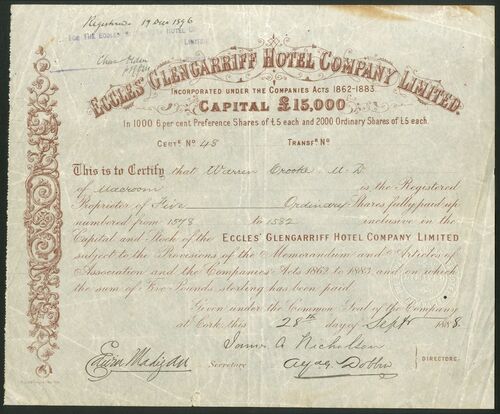 Registered 19 Dec 1896
FOR THE ECCLES HOTEL CO
LIMITED
ECCLES GLENGARRIFF HOTEL COMPANY LIMITED.
INCORPORATED UNDER THE COMPANIES ACTS 1862-1883.
CAPITAL £15,000
In 1000 6 per cent Preference Shares of £5 each and 2000 Ordinary Shares of £5 each.
CERTE. No 48 TRANSFR. No
This is to Certify that Warren Crooke M.D.
of Macroom is the Registered
Proprietor of Five Ordinary Shares fully paid up
numbered from 1578 to 1582 inclusive in the
Capital and Stock of the ECCLES' GLENGARRIFF HOTEL COMPANY LIMITED
subject to the Provisions of the Memorandum and Articles of
Association and the Companies' Acts 1862 to 1883 and on which
the sum of Five Pounds sterling has been paid.
Given under the Common Seal of the Company
at Cork, this 28th day of Sept 1888.
James A Nicholson
Secretary Dobbin
DIRECTORS.